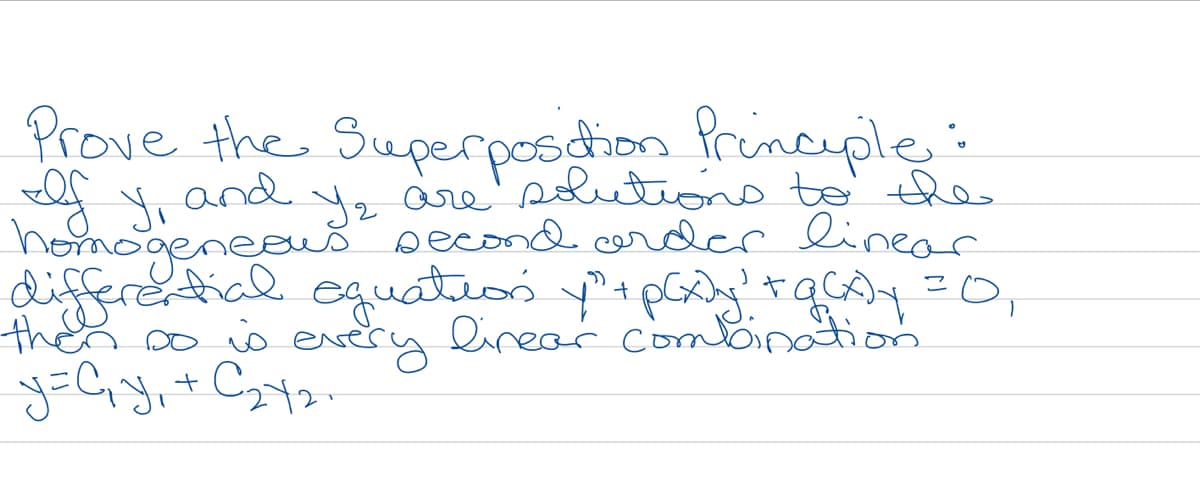 Prove the Superposition Principle:
If y₁ and y₂ are solutions to the
homogeneous second order linear
differential equation y'' + p(x)y' + q(x)y = 0,
then so is every linear combination
y = C₁y₁ + C₂y₂.